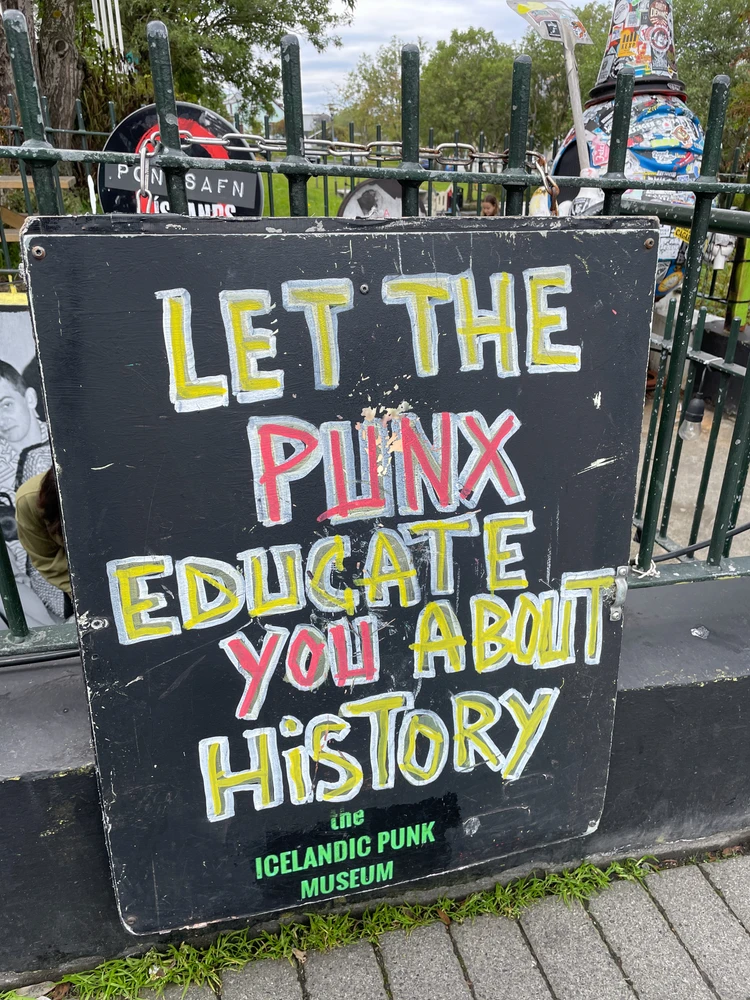 .PÖNKSAFN
ÍSLANDS
LET THE
PUNX
EDUCATE
YOU ABOUT
HiSTORY
the
ICELANDIC PUNK
MUSEUM